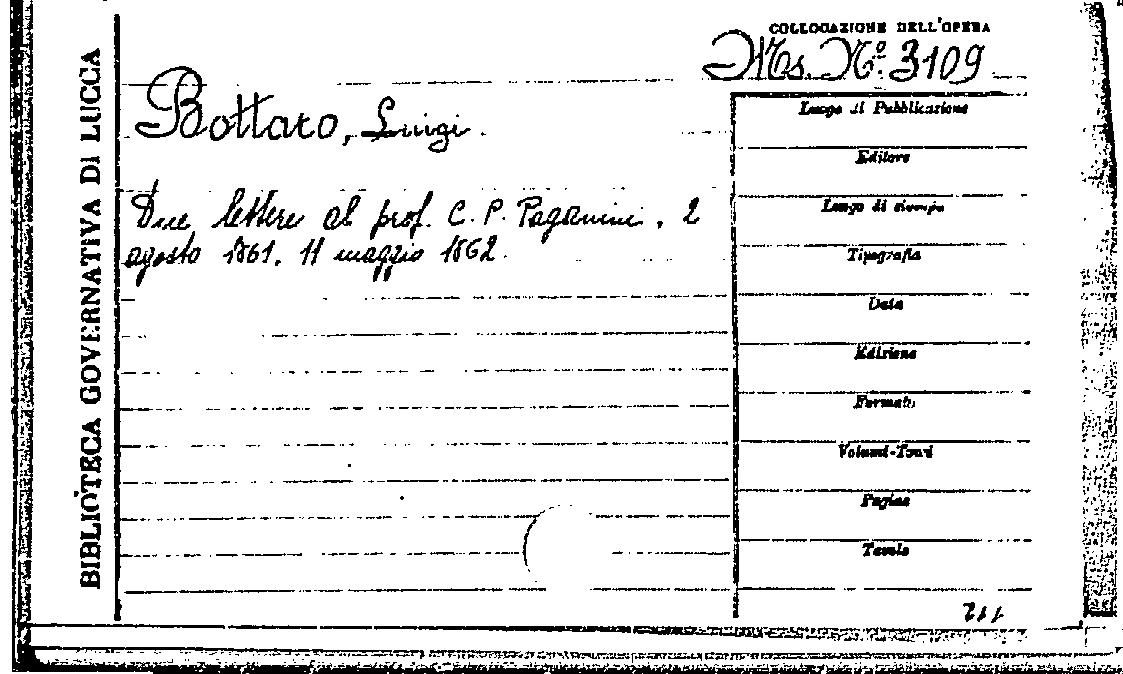 BIBLIOTECA GOVERNATIVA DI LUCCA
COLLOCAZIONE DELL'OPERA
Ms. Nº. 3109
Bottaro, Luigi.
Due lettere al prof. C. P. Paganini, 2
agosto 1861. 11 maggio 1862.
Luogo di Pubblicazione
Editore
Luogo di stampa
Tipografia
Data
Edizione
Formato
Volumi-Tomi
Pagine
Tavole